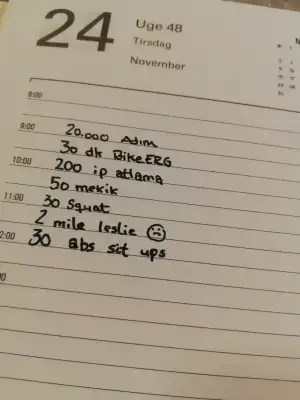 24
Uge 48
Tirsdag
November
8:00
9:00
20.000 Adım
30 dk BikeERG
10:00
200 ip atlama
50 mekik
11:00
30 Squat
2 mile leslie ☹
2:00
30 abs sit ups
00